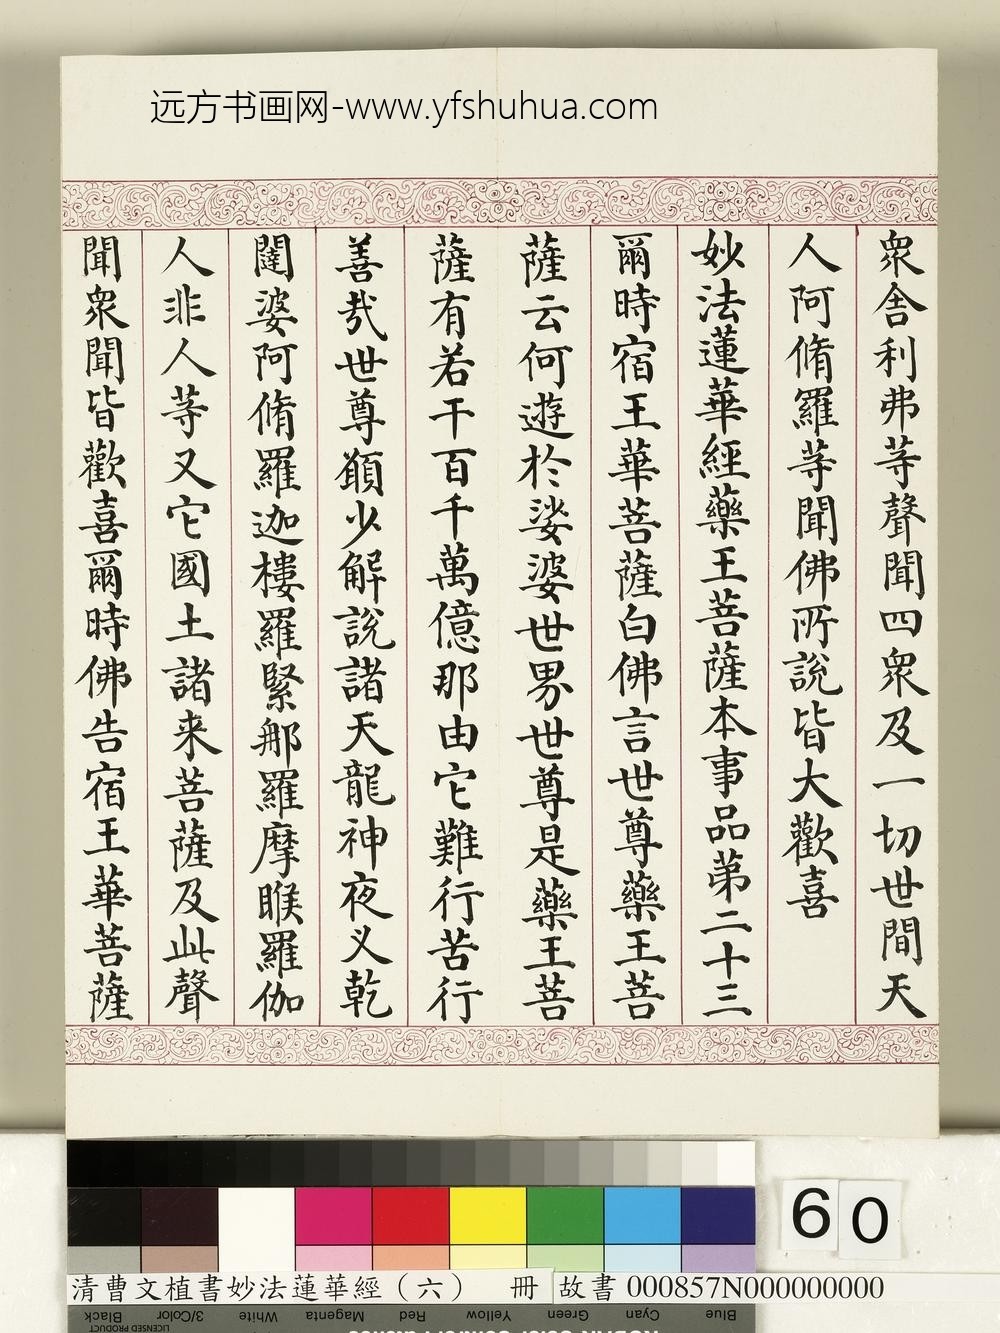 远方书画网-www.yfshuhua.com
衆舍利弗等聲聞四衆及一切世間天
人阿脩羅等聞佛所說皆大歡喜
妙法蓮華經藥王菩薩本事品第二十三
爾時宿王華菩薩白佛言世尊藥王菩
薩云何遊於娑婆世界世尊是藥王菩
薩有若干百千萬億那由它難行苦行
善哉世尊願少解說諸天龍神夜叉乾
闥婆阿脩羅迦樓羅緊那羅摩睺羅伽
人非人等又它國土諸来菩薩及此聲
聞衆聞皆歡喜爾時佛告宿王華菩薩
60
清曹文植書妙法蓮華經（六） 冊 故書 000857N000000000
Black 3/Color White Magenta Red Yellow Green Cyan Blue
LICENSED PRODUCT